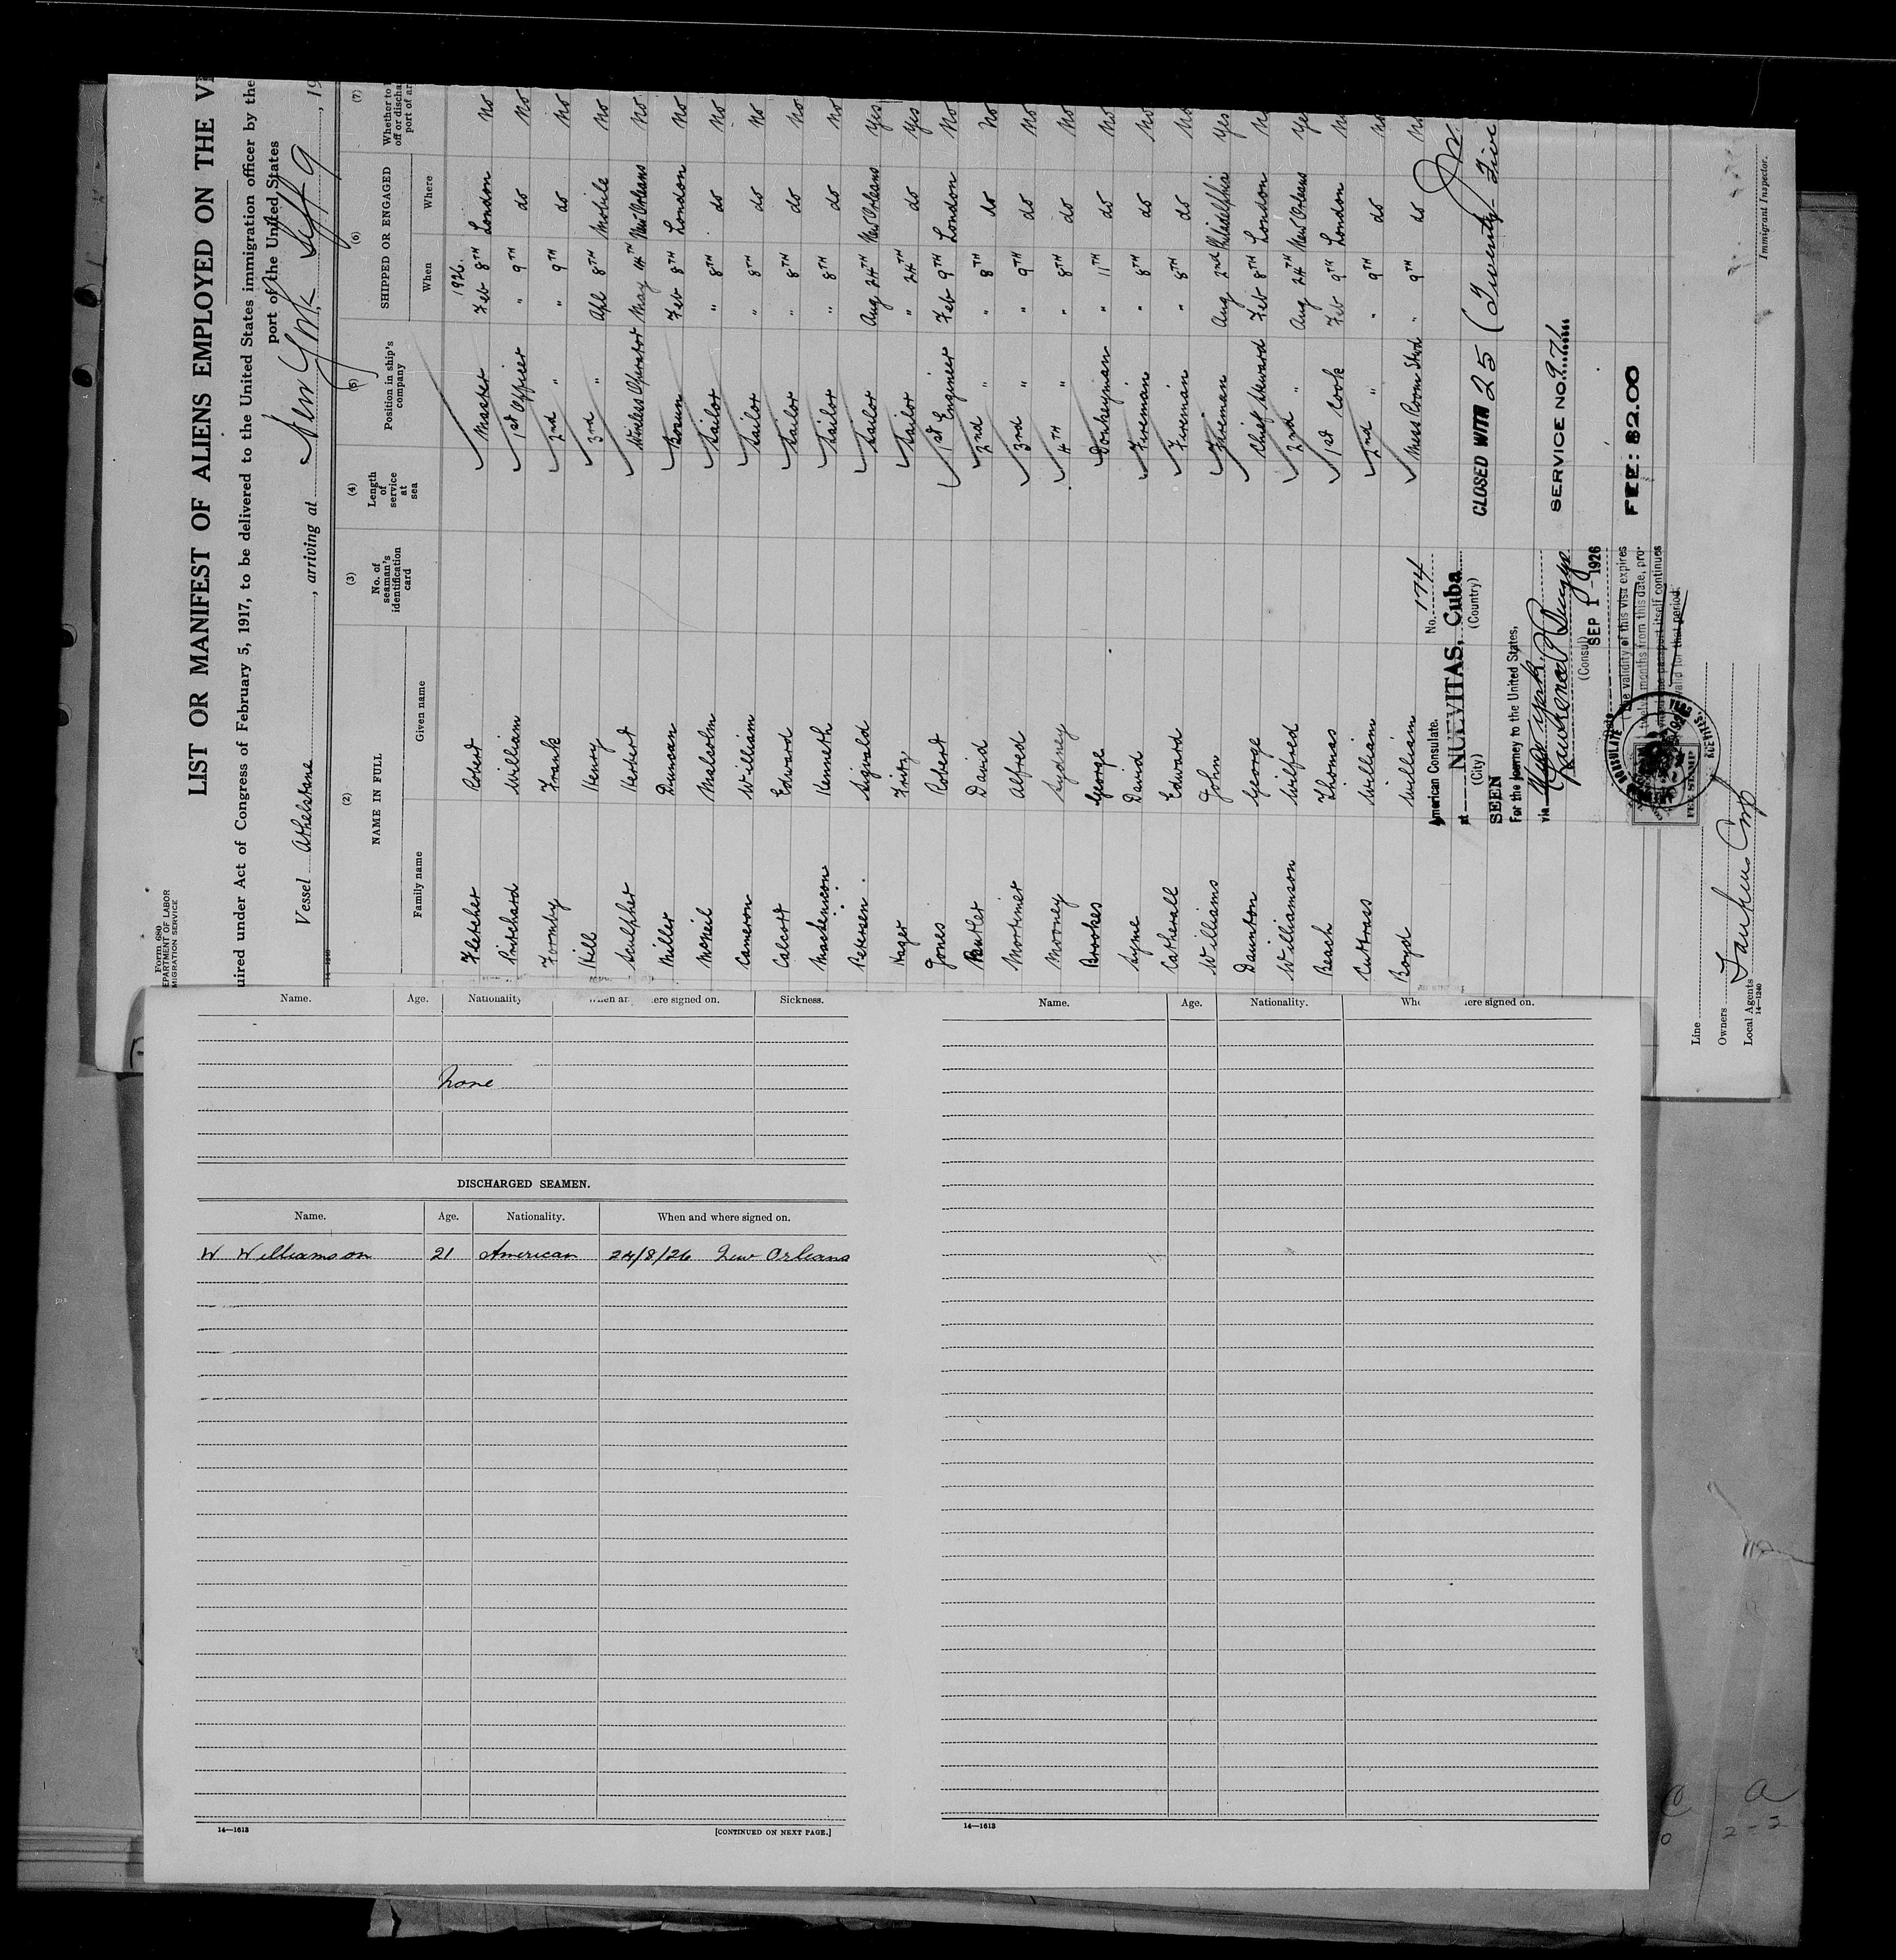 Form 680
LIST OR MANIFEST OF ALIENS EMPLOYED ON THE
uired under Act of Congress of February 5, 1917, to be delivered to the United States immigration officer by the
port of the United States
Vessel Athelstane, arriving at New York Sept 9, 19
(2) (3) (4) (5) (6) (7)
NAME IN FULL No. of seaman's identification card Length of service at sea Position in ship's company SHIPPED OR ENGAGED Whether to
off or discha
port of ar
Family name Given name When Where
1926.
Fletcher Robert Master Feb 8TH London No
Pritchard William 1st Officer " 9TH do No
Formby Frank 2nd " " 9TH do No
Hill Henry 3rd " Apl 8TH Mobile No
Sulpher Herbert Wireless Operator May 14TH New Orleans No.
Miller Duncan Bosun Feb 8TH London No
McNeil Malcolm Sailor " 8TH do No
Cameron William Sailor " 8TH do No
Calcott Edward Sailor " 8TH do No
Mackinnon Kenneth Sailor " 8TH do No
Petersen Sigvald Sailor Aug 24TH New Orleans Yes
Hager Fritz Sailor " 24TH do Yes
Jones Robert 1st Engineer Feb 9TH London No
Butler David 2nd " " 8TH do No
Mortimer Alfred 3rd " " 9TH do No
Mooney Sydney 4TH " " 8TH do No
Brookes George Donkeyman " 11TH do No
Syme David Fireman " 8TH do No
Catherall Edward Fireman " 8TH do No
Williams John Fireman Aug 2nd Philadelphia Yes
Daunton George Chief Steward Feb 8TH London N
Williamson Wilfred 2nd " Aug 24TH New Orleans Ye
Beach Thomas 1st Cook Feb 9TH London N
Cuttrass William 2nd " " 9TH do N
Boyd William Mess Room Stwd " 9TH do N
American Consulate. No. 174
at NUEVITAS, Cuba
(City) (Country)
SEEN
For the journey to the United States,
via New York
(Consul)
SEP 1 1926
The validity of this visa expires
months from this date, pro-
passport itself continues
valid for that period.
CONSULATE
FEE STAMP
CLOSED WITH 25 (Twenty-Five
SERVICE NO. 971
FEE: $2.00
Line
Owners
Local Agents
14—1240
Immigrant Inspector.
Name. Age. Nationality ere signed on. Sickness.
None
DISCHARGED SEAMEN.
Name. Age. Nationality. When and where signed on.
W Williamson 21 American 24/8/26 New Orleans
14—1613 [CONTINUED ON NEXT PAGE.]
Name. Age. Nationality. Whe ere signed on.
14—1613